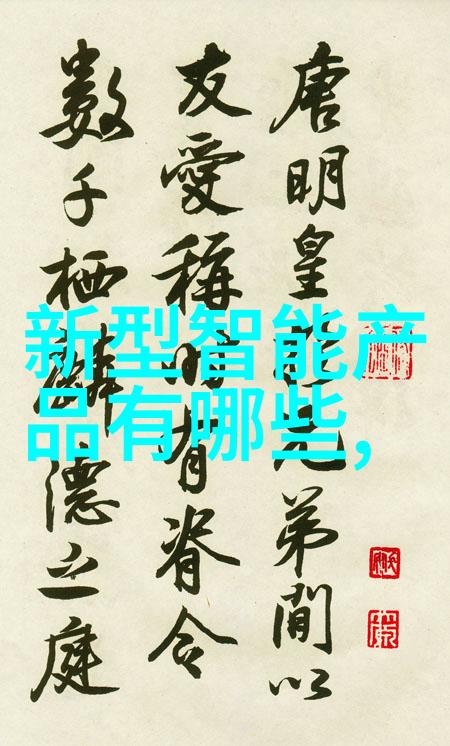 唐明皇兄弟間以
友愛稱時有脊令
數千栖麟德之庭
新型智能产
品有哪些,